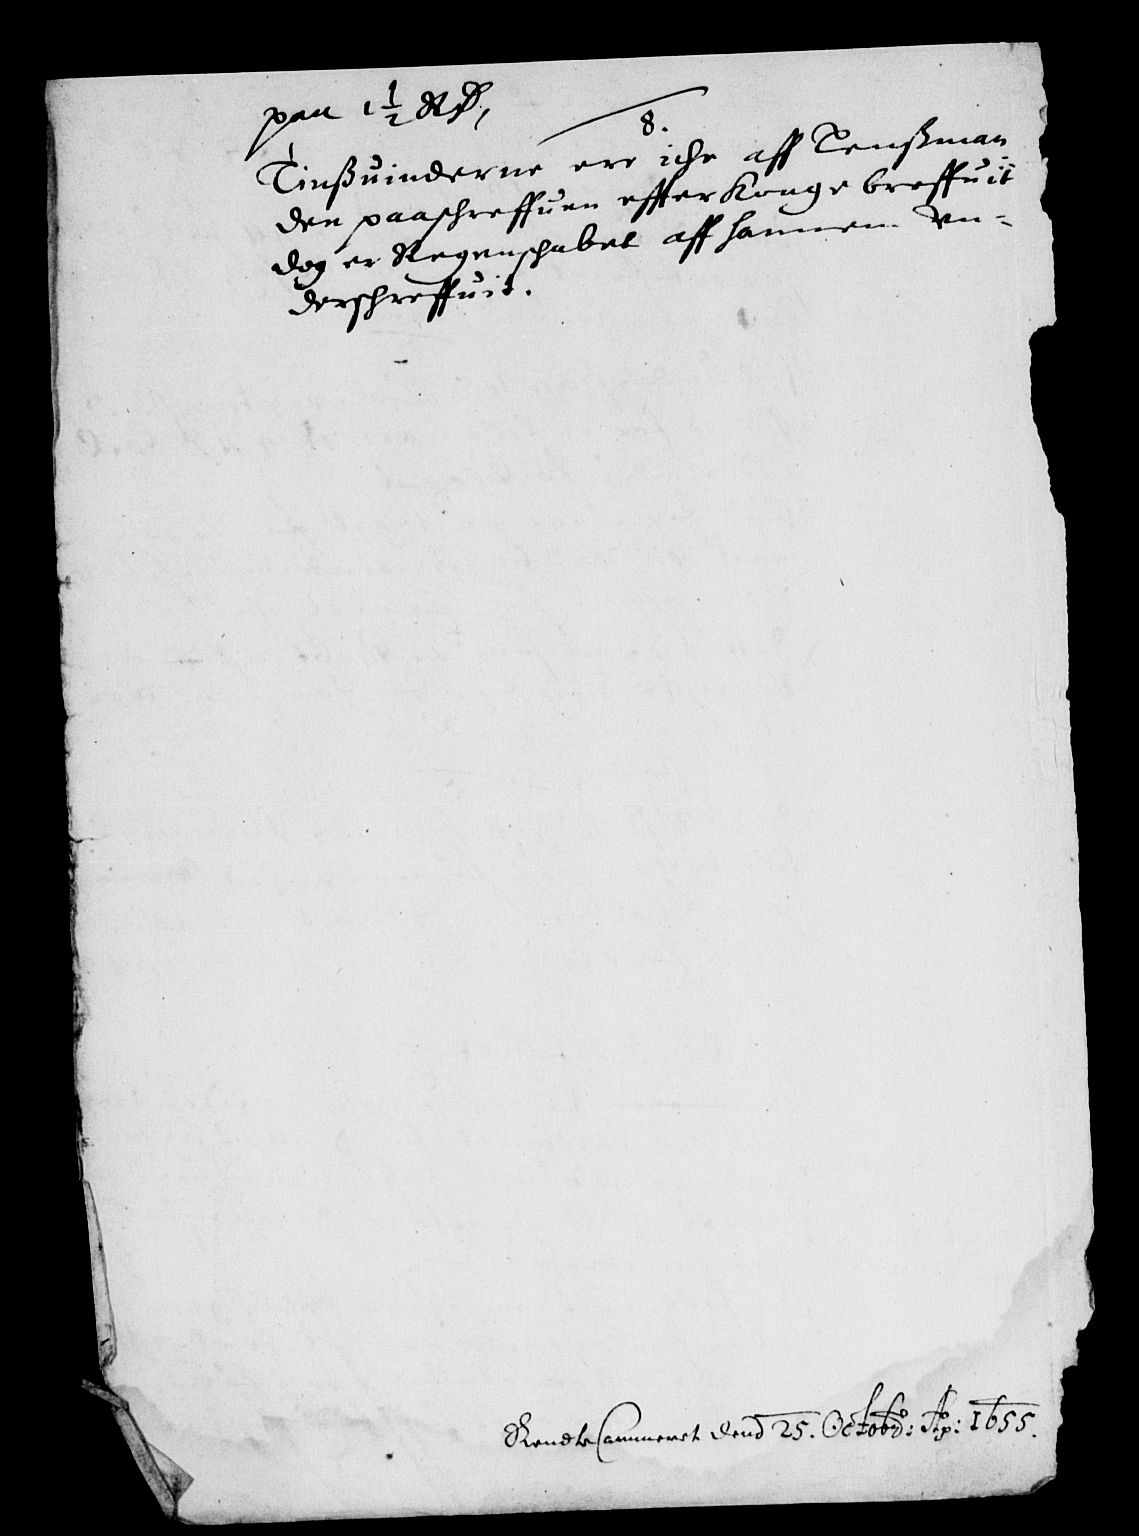 paa 1½ Rd,
8.
Tinßuinderne ere iche aff Lenßman
den paaschreffuen effter Konge breffuit
dog er Regenschabet aff hannem Un-
derschreffuit.
RendteCammeret dend 25. Octobr: Ao: 1655.